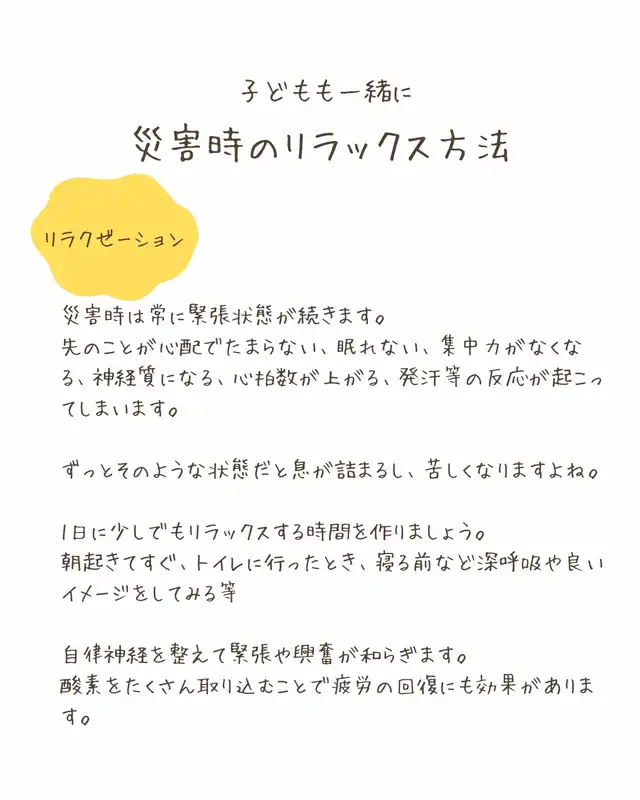 子どもも一緒に
災害時のリラックス方法
リラクゼーション
災害時は常に緊張状態が続きます。
先のことが心配でたまらない、眠れない、集中力がなくな
る、神経質になる、心拍数が上がる、発汗等の反応が起こっ
てしまいます。
ずっとそのような状態だと息が詰まるし、苦しくなりますよね。
1日に少しでもリラックスする時間を作りましょう。
朝起きてすぐ、トイレに行ったとき、寝る前など深呼吸や良い
イメージをしてみる等
自律神経を整えて緊張や興奮が和らぎます。
酸素をたくさん取り込むことで疲労の回復にも効果がありま
す。